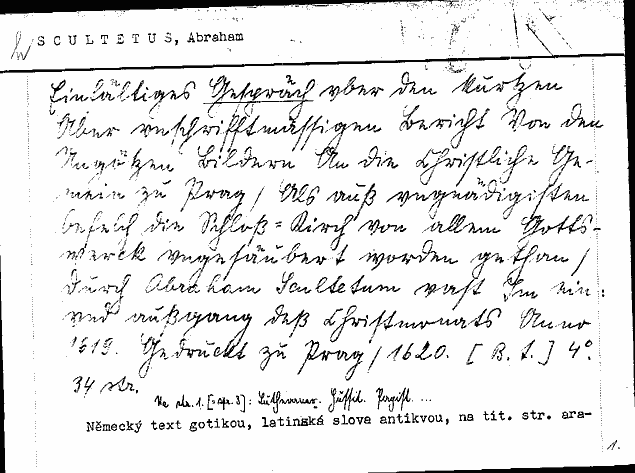 SCULTETUS, Abraham
Einfältiges Gespräch vber den kurtzen
Aber vnschrifftmässigen Bericht Von den
Bildern An die Christliche Ge-
mein zu Prag / Als auß vngnädigisten
befelch die Schloß=Kirch von allem Gotts-
werck vngesäubert worden gethan /
durch Abraham Scultetum vast Im ein:
vnd außgang deß Christmonats Anno
1619. Gedruckt zu Prag / 1620. [B. t.] 4°.
34 str.
Na str. 1. Lutheraner. Hussit. Papist. ...
Německý text gotikou, latinská slova antikvou, na tit. str. ara-
1.